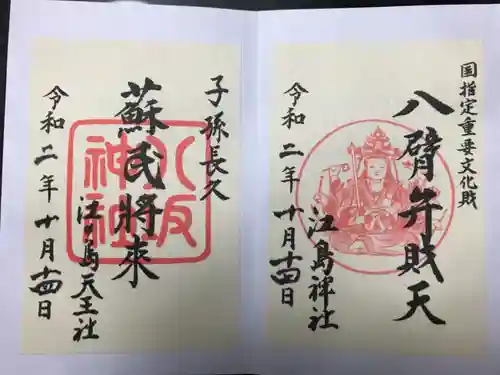 国指定重要文化財
八臂弁財天
江島神社
令和二年十月十四日
子孫長久
蘇民將来
江ノ島天王社
令和二年十月十四日
八坂神社